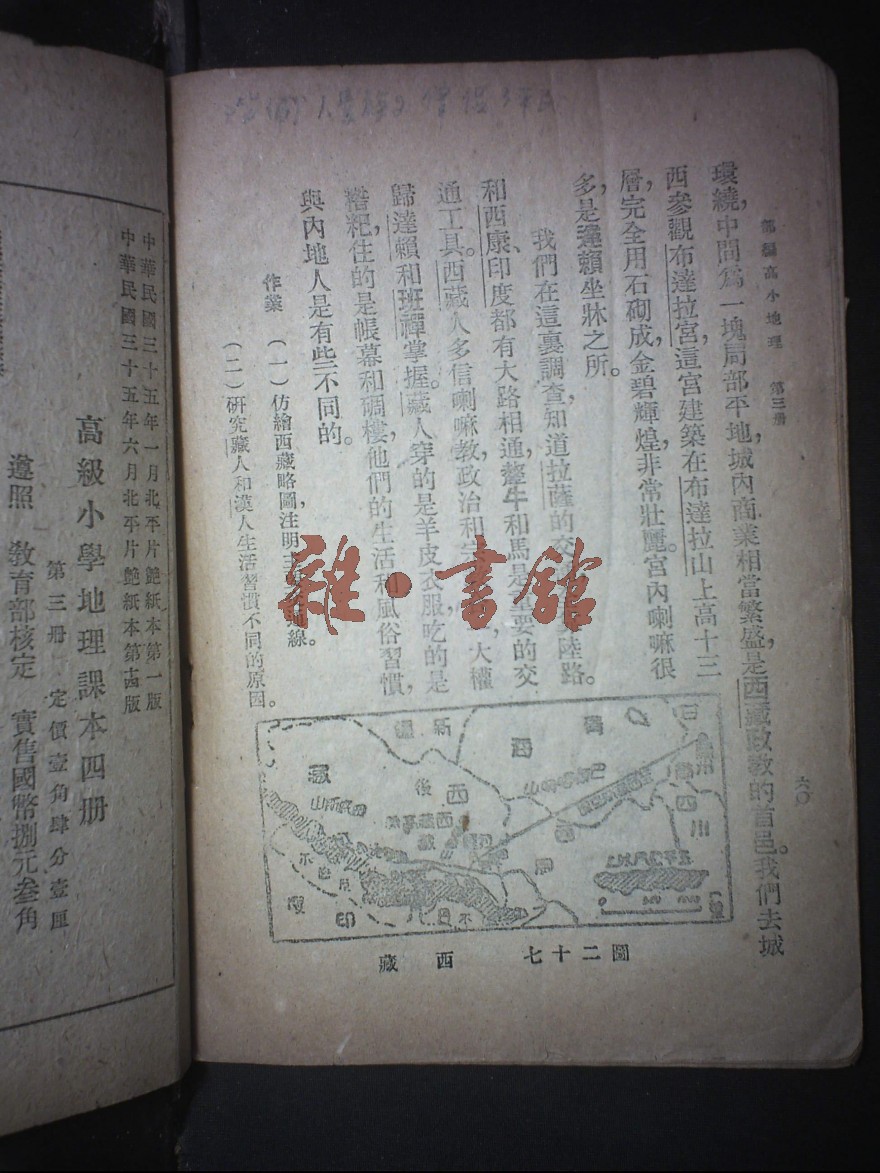 第三册
六〇
環繞，中間爲一塊局部平地，城內商業相當繁盛，是西藏政教的首邑。我們去城
西參觀布達拉宮，這宮建築在布達拉山上，高十三
層，完全用石砌成，金碧輝煌，非常壯麗。宮內喇嘛很
多，是達賴坐牀之所。
我們在這裏調查，知道拉薩的交 陸路。
和西康、印度都有大路相通，犛牛和馬是重要的交
通工具。西藏人多信喇嘛教，政治和 大權
歸達賴和班禪掌握。藏人穿的是羊皮衣服，吃的是
糌粑，住的是帳幕和碉樓，他們的生活和風俗習慣，
與內地人是有些不同的。
作業 （一）仿繪西藏略圖，注明主 線。
（二）研究藏人和漢人生活習慣不同的原因。
雜·書館
新疆
青海
西
藏
後
川
四
印
度
圖二十七 西藏
中華民國三十五年一月北平片艷紙本第一版
中華民國三十五年六月北平片艷紙本第 版
高級小學地理課本四册
第三册 定價壹角肆分壹厘
遵照教育部核定 實售國幣捌元叁角